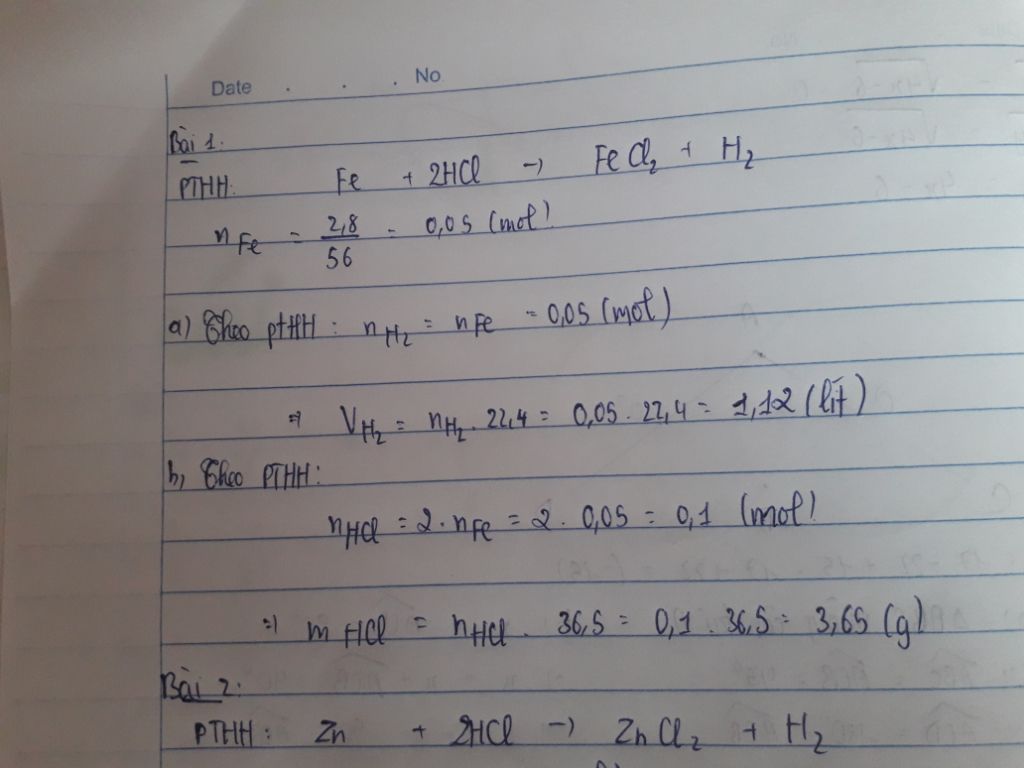 Date . . . No.
Bài 1:
PTHH: Fe + 2HCl → FeCl₂ + H₂
nFe = 2,8/56 = 0,05 (mol)
a) Theo ptHH: nH₂ = nFe = 0,05 (mol)
⇒ VH₂ = nH₂ . 22,4 = 0,05 . 22,4 = 1,12 (lít)
b, Theo PTHH:
nHCl = 2 . nFe = 2 . 0,05 = 0,1 (mol)
⇒ mHCl = nHCl . 36,5 = 0,1 . 36,5 = 3,65 (g)
Bài 2:
PTHH: Zn + 2HCl → ZnCl₂ + H₂